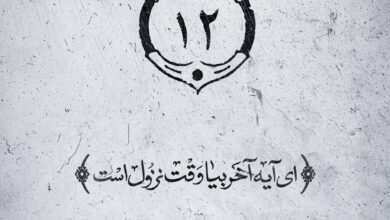 ١٢
﴿ای آیه آخر بیا وقت نزول است﴾